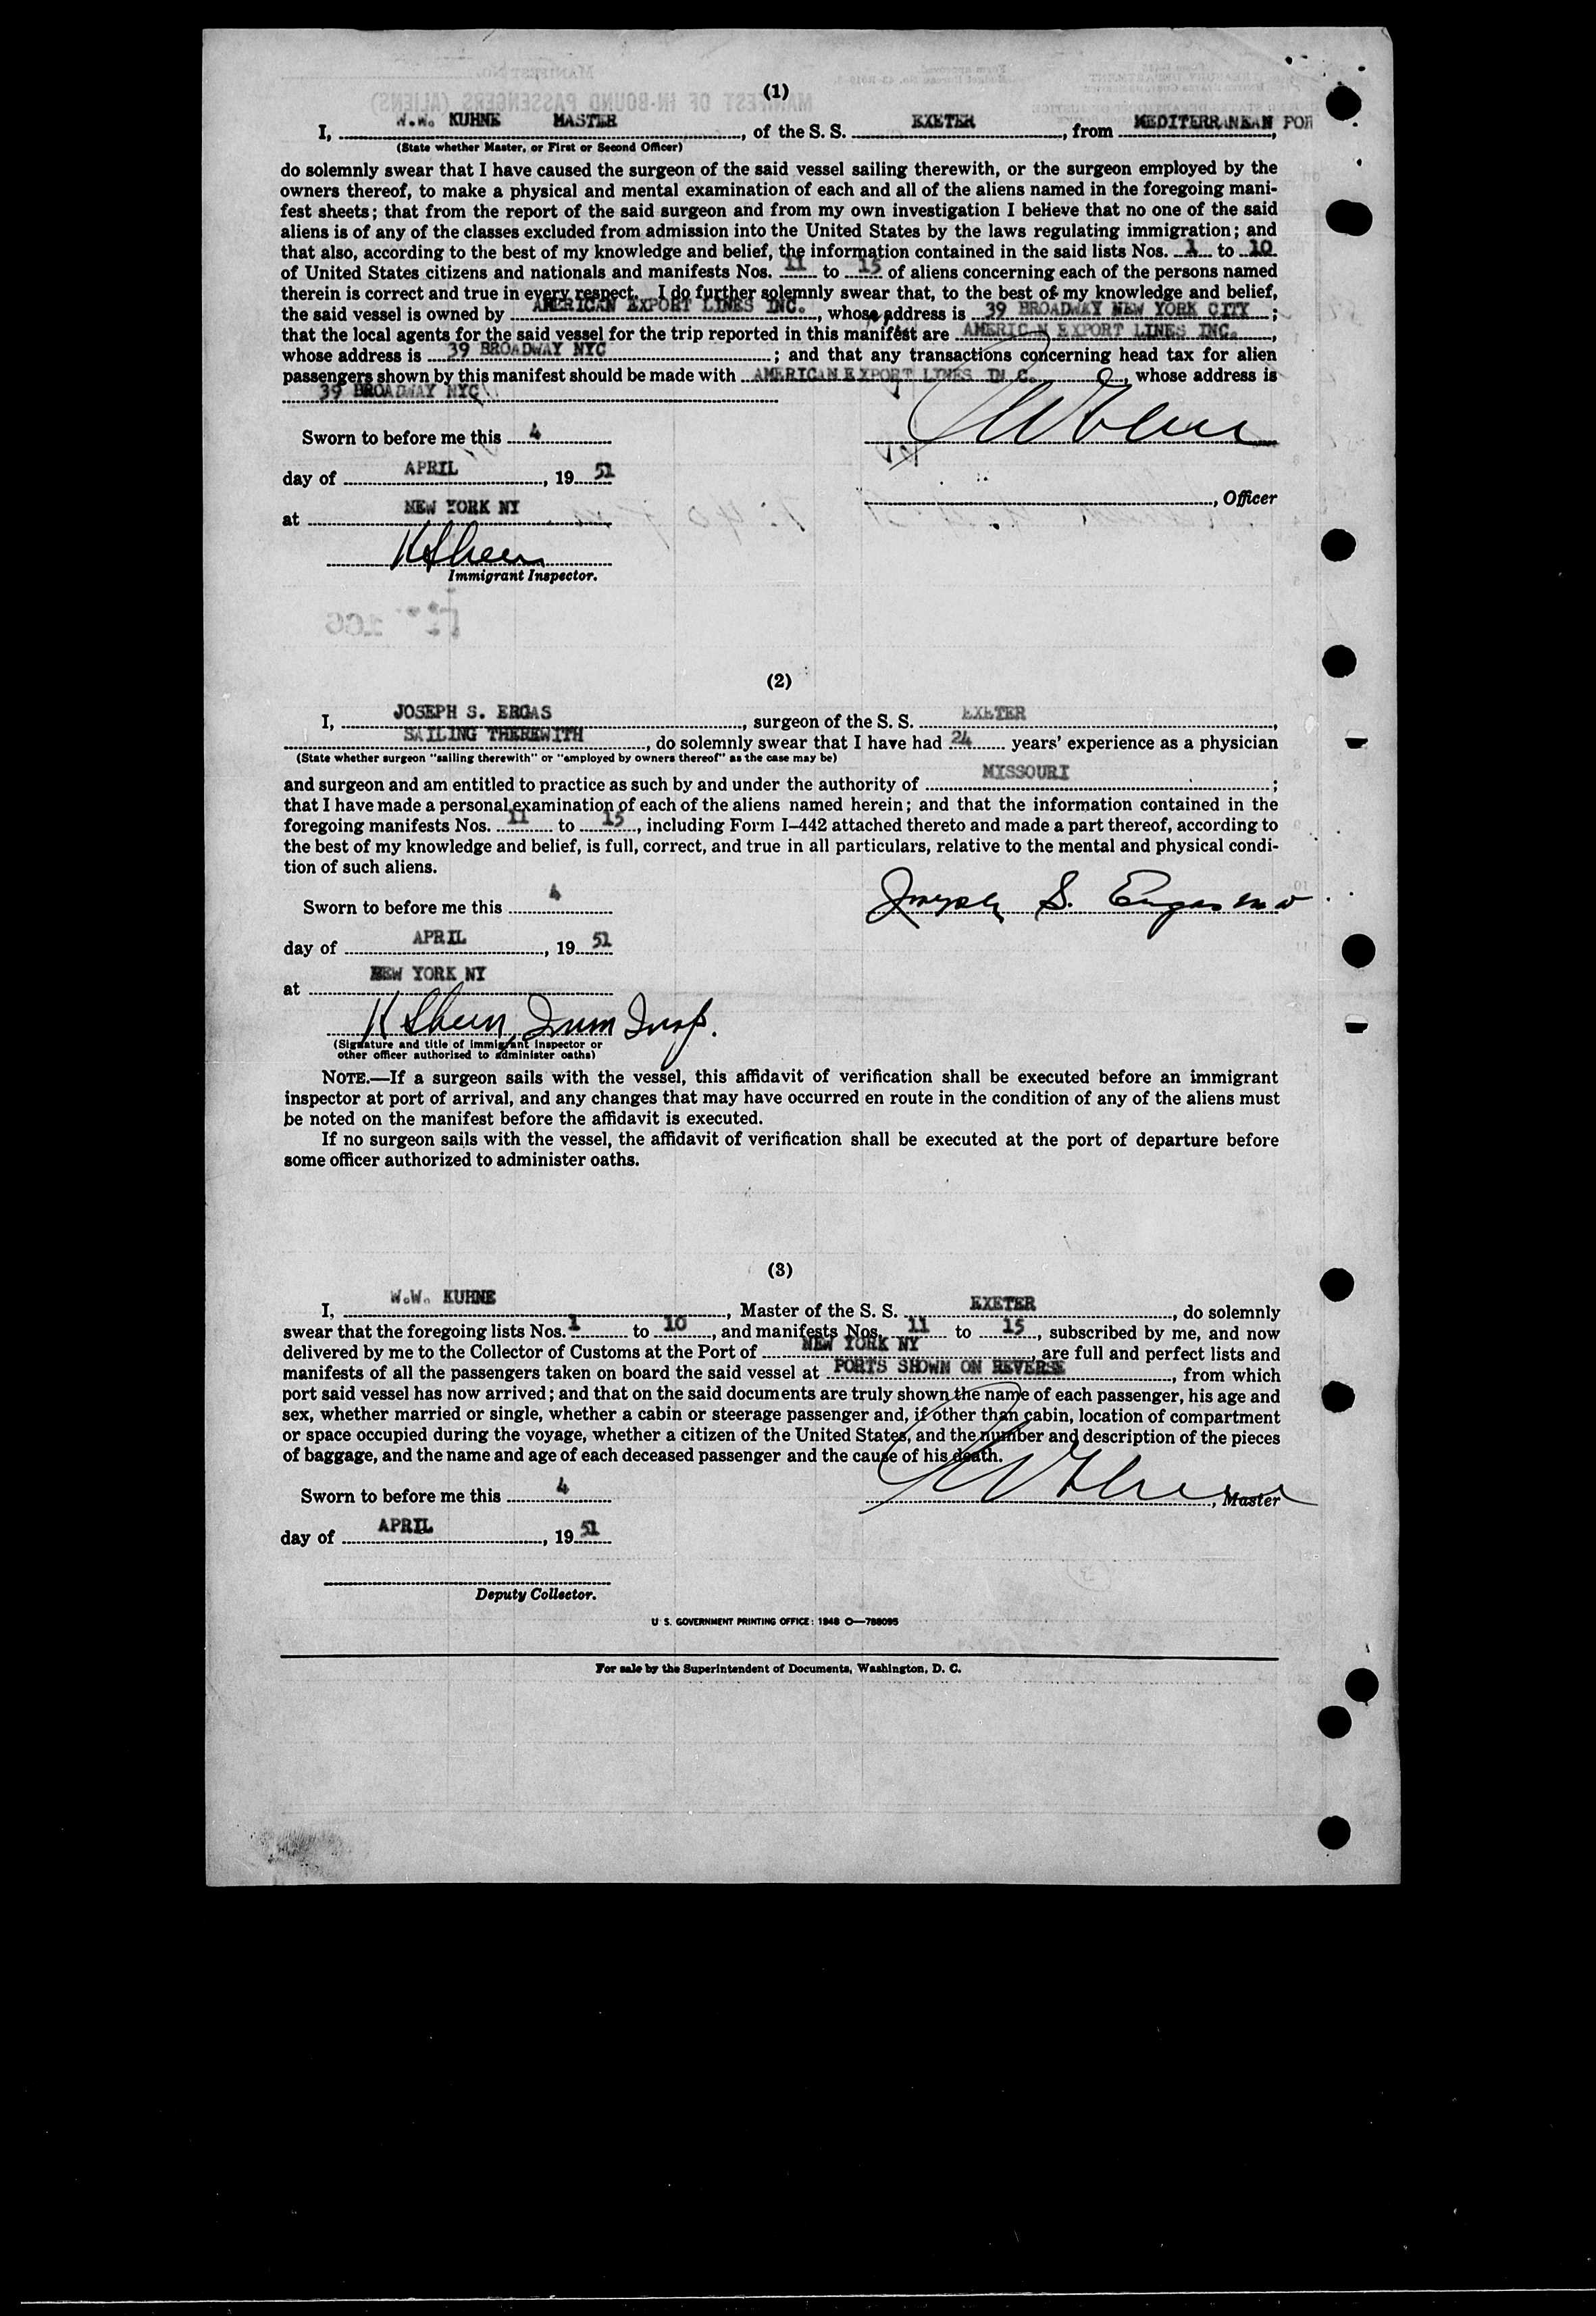 (1)
I, W.W. KUHNE MASTER, of the S. S. EXETER, from MEDITERRANEAN POR
(State whether Master, or First or Second Officer)
do solemnly swear that I have caused the surgeon of the said vessel sailing therewith, or the surgeon employed by the
owners thereof, to make a physical and mental examination of each and all of the aliens named in the foregoing mani-
fest sheets; that from the report of the said surgeon and from my own investigation I believe that no one of the said
aliens is of any of the classes excluded from admission into the United States by the laws regulating immigration; and
that also, according to the best of my knowledge and belief, the information contained in the said lists Nos. 1 to 10
of United States citizens and nationals and manifests Nos. 11 to 15 of aliens concerning each of the persons named
therein is correct and true in every respect. I do further solemnly swear that, to the best of my knowledge and belief,
the said vessel is owned by AMERICAN EXPORT LINES INC., whose address is 39 BROADWAY NEW YORK CITY;
that the local agents for the said vessel for the trip reported in this manifest are AMERICAN EXPORT LINES INC.,
whose address is 39 BROADWAY NYC; and that any transactions concerning head tax for alien
passengers shown by this manifest should be made with AMERICAN EXPORT LINES IN C., whose address is
39 BROADWAY NYC
Sworn to before me this 4
day of APRIL, 19 51
, Officer
at NEW YORK NY
K Sheen
Immigrant Inspector.
(2)
I, JOSEPH S. ERGAS, surgeon of the S. S. EXETER,
SAILING THEREWITH, do solemnly swear that I have had 24 years' experience as a physician
(State whether surgeon "sailing therewith" or "employed by owners thereof" as the case may be)
and surgeon and am entitled to practice as such by and under the authority of MISSOURI;
that I have made a personal examination of each of the aliens named herein; and that the information contained in the
foregoing manifests Nos. 11 to 15, including Form I-442 attached thereto and made a part thereof, according to
the best of my knowledge and belief, is full, correct, and true in all particulars, relative to the mental and physical condi-
tion of such aliens.
Joseph S. Ergas MD
Sworn to before me this 4
day of APRIL, 19 51
at NEW YORK NY
K Sheen, Imm Insp.
(Signature and title of immigrant inspector or
other officer authorized to administer oaths)
NOTE.—If a surgeon sails with the vessel, this affidavit of verification shall be executed before an immigrant
inspector at port of arrival, and any changes that may have occurred en route in the condition of any of the aliens must
be noted on the manifest before the affidavit is executed.
If no surgeon sails with the vessel, the affidavit of verification shall be executed at the port of departure before
some officer authorized to administer oaths.
(3)
I, W.W. KUHNE, Master of the S. S. EXETER, do solemnly
swear that the foregoing lists Nos. 1 to 10, and manifests Nos. 11 to 15, subscribed by me, and now
delivered by me to the Collector of Customs at the Port of NEW YORK NY, are full and perfect lists and
manifests of all the passengers taken on board the said vessel at PORTS SHOWN ON REVERSE, from which
port said vessel has now arrived; and that on the said documents are truly shown the name of each passenger, his age and
sex, whether married or single, whether a cabin or steerage passenger and, if other than cabin, location of compartment
or space occupied during the voyage, whether a citizen of the United States, and the number and description of the pieces
of baggage, and the name and age of each deceased passenger and the cause of his death.
Sworn to before me this 4
, Master
day of APRIL, 19 51
Deputy Collector.
U. S. GOVERNMENT PRINTING OFFICE: 1948 O—788095
For sale by the Superintendent of Documents, Washington, D. C.